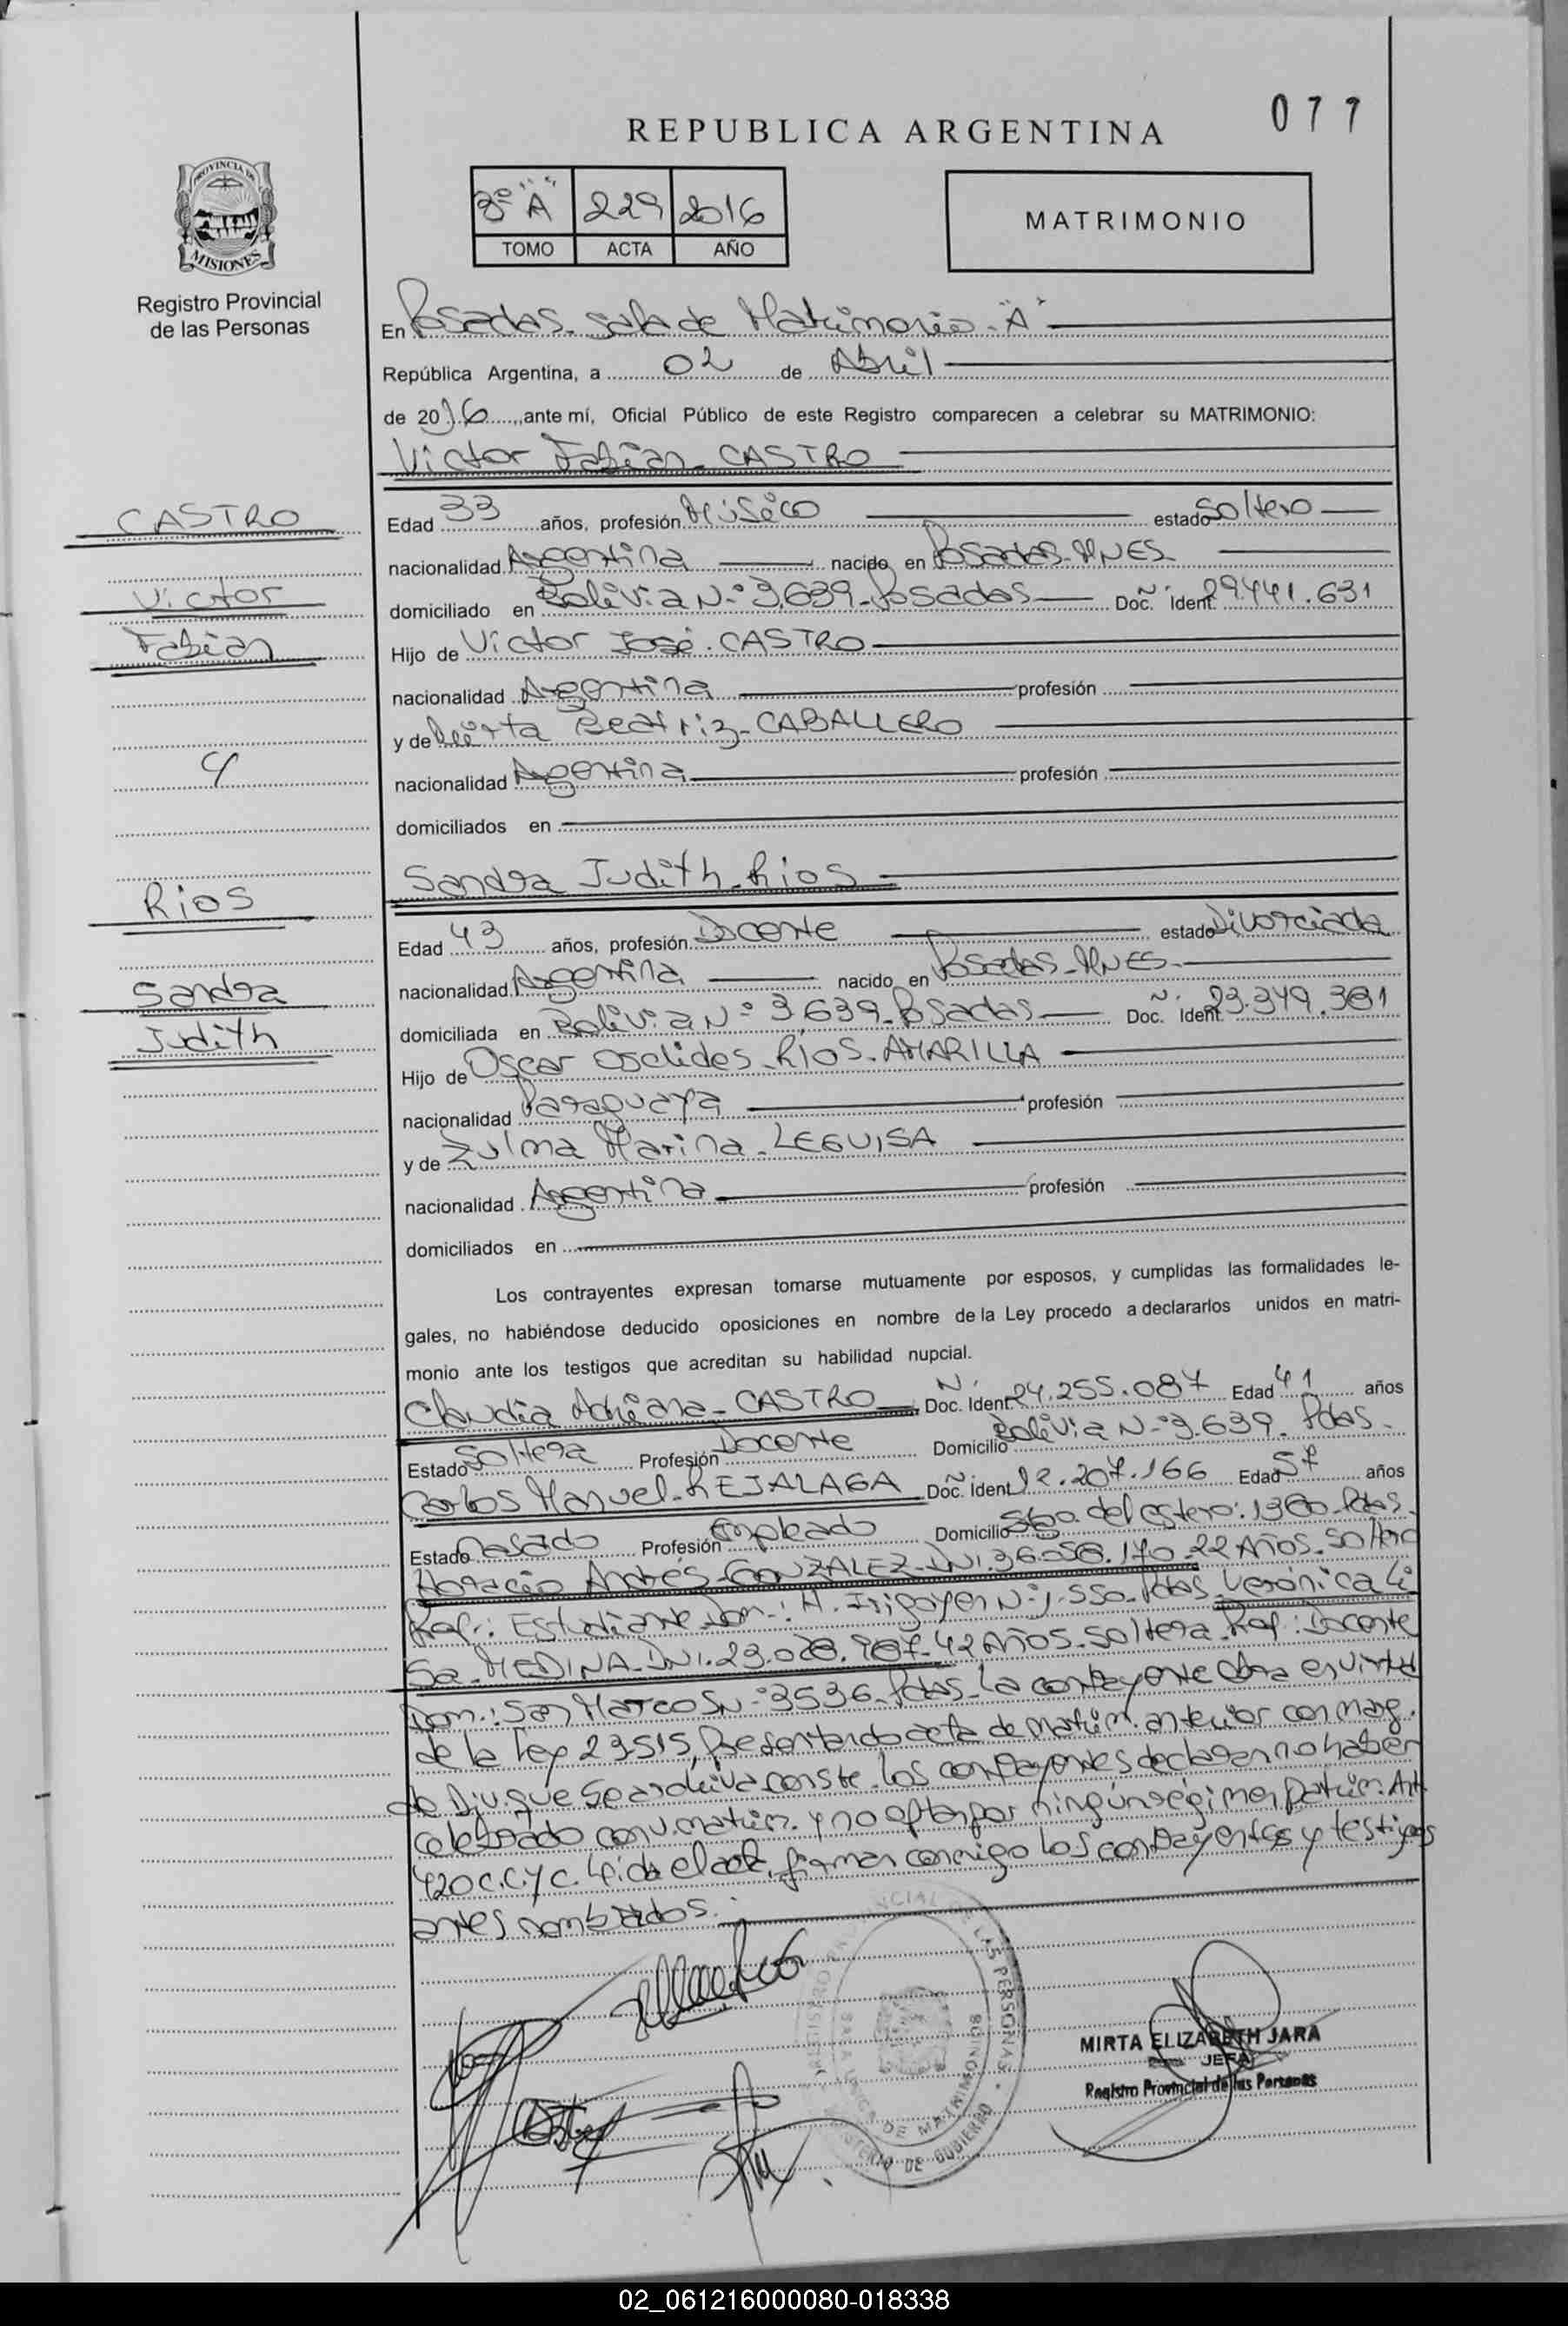 077
REPUBLICA ARGENTINA
3º "A" 229 2016
TOMO ACTA AÑO
MATRIMONIO
PROVINCIA DE
MISIONES
Registro Provincial
de las Personas
En Posadas. Sala de Matrimonio. "A"
República Argentina, a 02 de Abril
de 2016, ante mí, Oficial Público de este Registro comparecen a celebrar su MATRIMONIO:
Victor Fabian CASTRO
CASTRO
Edad 33 años, profesión Músico estado Soltero
nacionalidad Argentina nacido en Posadas-MNES
Victor
domiciliado en Bolivia Nº 3.639-Posadas Doc. Ident. 29.441.631
Fabian
Hijo de Victor José CASTRO
nacionalidad Argentina profesión
y de Beatriz-CABALLERO
y
nacionalidad Argentina profesión
domiciliados en
Sandra Judith-Rios
Rios
Edad 43 años, profesión Docente estado Divorciada
nacionalidad Argentina nacido en Posadas-MNES
Sandra
domiciliada en Bolivia Nº 3.639-Posadas Doc. Ident. 23.349.381
Judith
Hijo de Oscar RIOS-AMARILLA
nacionalidad Paraguaya profesión
y de Zulma Marina-LEGUISA
nacionalidad Argentina profesión
domiciliados en
Los contrayentes expresan tomarse mutuamente por esposos, y cumplidas las formalidades le-
gales, no habiéndose deducido oposiciones en nombre de la Ley procedo a declararlos unidos en matri-
monio ante los testigos que acreditan su habilidad nupcial.
Claudia Adriana-CASTRO Doc. Ident. 24.255.087 Edad 41 años
Estado Soltera Profesión Docente Domicilio Bolivia Nº 3.639-Pdas.
Carlos Manuel-REJALAGA Doc. Ident. 12.207.166 Edad 57 años
Estado Casado Profesión Empleado Domicilio Sgo. del estero: 1380-Pdas.
Horacio Andrés-GONZALEZ-DNI. 36.058.170-22 Años-Soltero
Prof.: Estudiante Dom.: H. Irigoyen Nº 1.550-Pdas. Verónica Li
Sa-MEDINA-DNI. 23.028.987-42 Años-Soltera-Prof: Docente
Dom.: San Marco Nº 3536-Pdas-La contrayente obra en virtud
de la Ley 23515, Presentando acta de matrim. anterior con marg.
de Div. que se archiva conste. Los contrayentes declaran no haber
celebrado conv. matrim. y no optan por ningún régimen patrim. Art.
420 C.C.y C. Leída el acta, firman conmigo los contrayentes y testigos
antes nombrados.
REGISTRO PROVINCIAL DE LAS PERSONAS
SALA DE MATRIMONIOS
MINISTERIO DE GOBIERNO
MIRTA ELIZABETH JARA
JEFA
Registro Provincial de las Personas
02_061216000080-018338